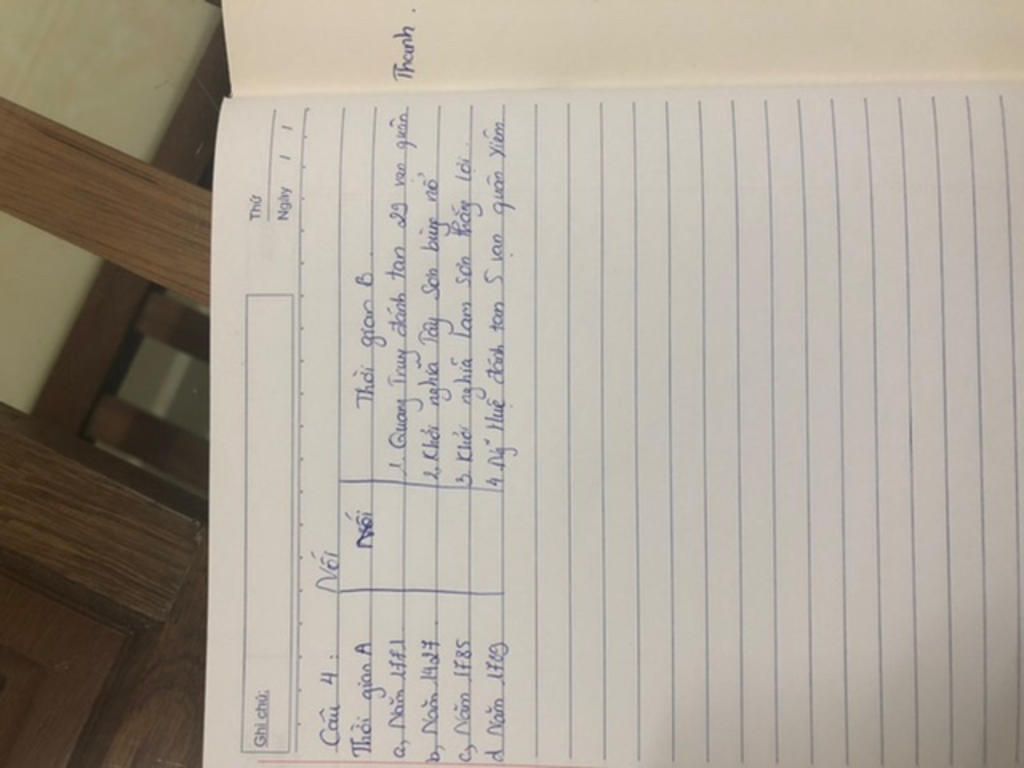 Thứ
Ngày / /
Ghi chú:
Câu 4: Nối
Thời gian A Nối Thời gian B.
a, Năm 1771 1. Quang Trung đánh tan 29 vạn quân Thanh.
b, Năm 1427 2. Khởi nghĩa Tây Sơn bùng nổ
c, Năm 1785 3. Khởi nghĩa Lam Sơn thắng lợi.
d Năm 1789 4. Ng Huệ đánh tan 5 vạn quân Xiêm